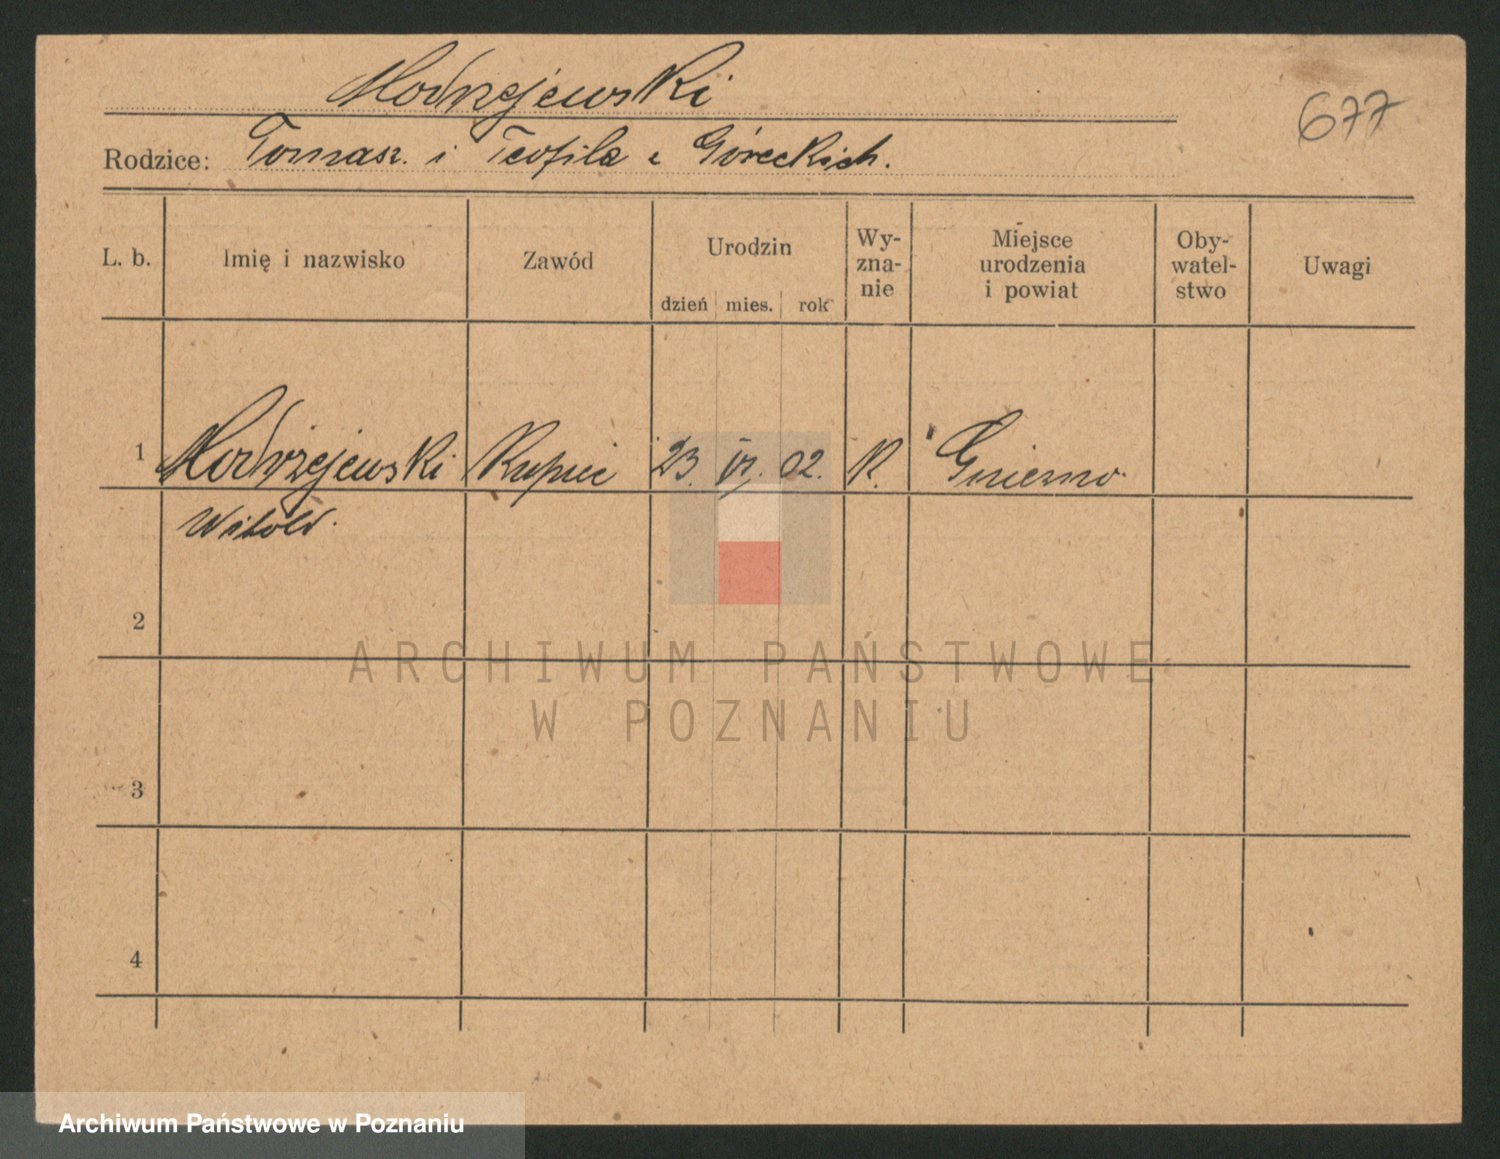 Modrzejewski
677
Rodzice: Tomasz. i Teofila z Góreckich.
L. b. Imię i nazwisko Zawód Urodzin dzień mies. rok Wy-zna-nie Miejsce urodzenia i powiat Oby-watel-stwo Uwagi
1 Modrżejewski Kupiec 23. VI. 02. K. Gniezno.
Witold.
2
ARCHIWUM PAŃSTWOWE
W POZNANIU
3
4
Archiwum Państwowe w Poznaniu